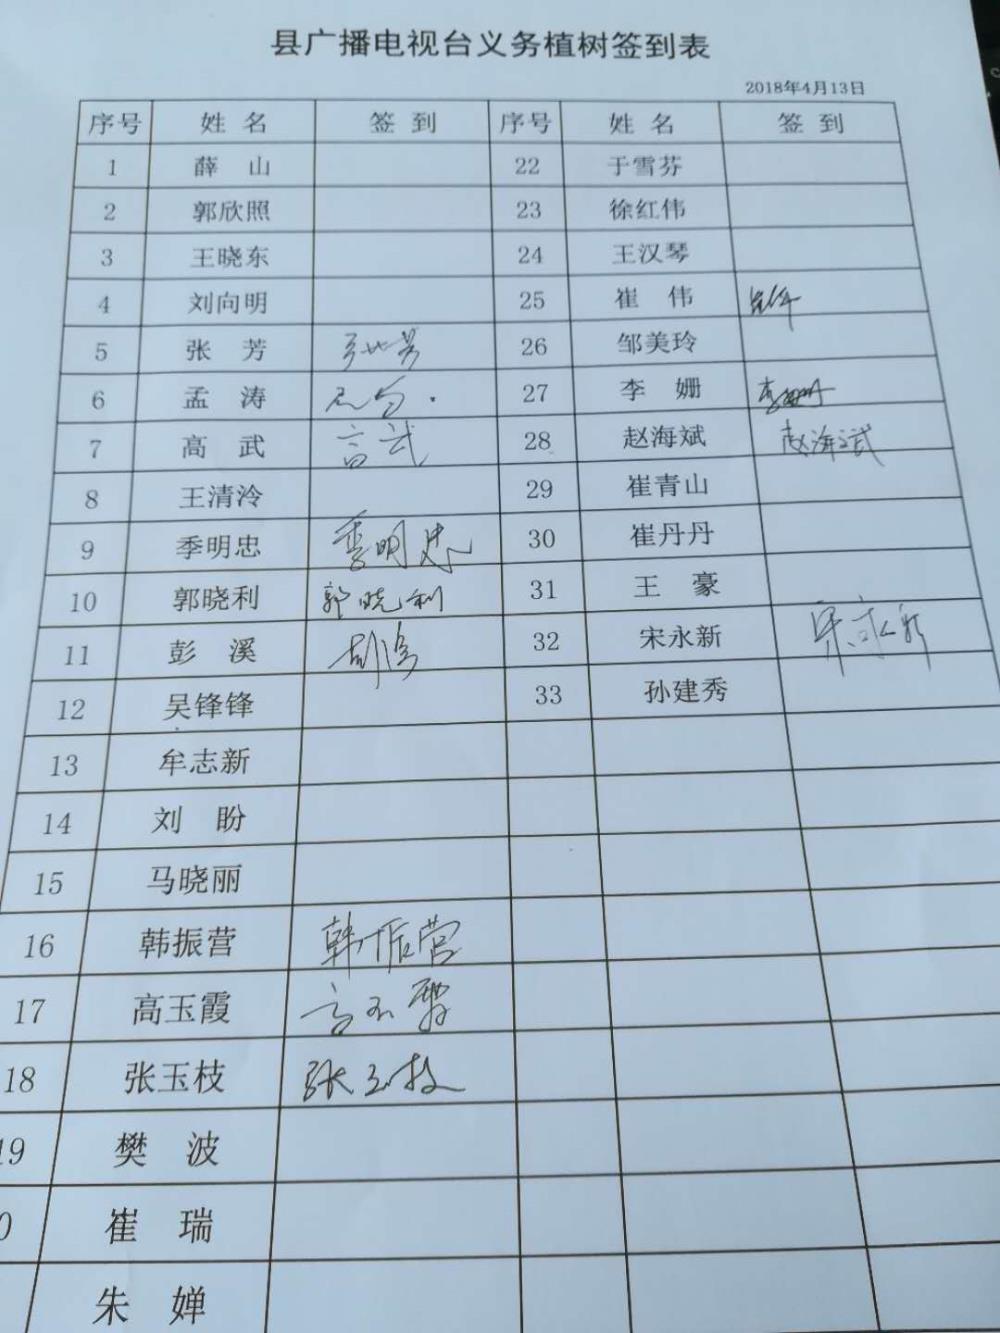 县广播电视台义务植树签到表
2018年4月13日
序号 姓名 签到 序号 姓名 签到
1 薛山 22 于雪芬
2 郭欣照 23 徐红伟
3 王晓东 24 王汉琴
4 刘向明 25 崔伟 崔伟
5 张芳 张芳 26 邹美玲
6 孟涛 27 李姗 李姗
7 高武 高武 28 赵海斌 赵海斌
8 王清泠 29 崔青山
9 季明忠 季明忠 30 崔丹丹
10 郭晓利 郭晓利 31 王豪
11 彭溪 彭溪 32 宋永新 宋永新
12 吴锋锋 33 孙建秀
13 牟志新
14 刘盼
15 马晓丽
16 韩振营 韩振营
17 高玉霞 高玉霞
18 张玉枝 张玉枝
19 樊波
0 崔瑞
朱婵